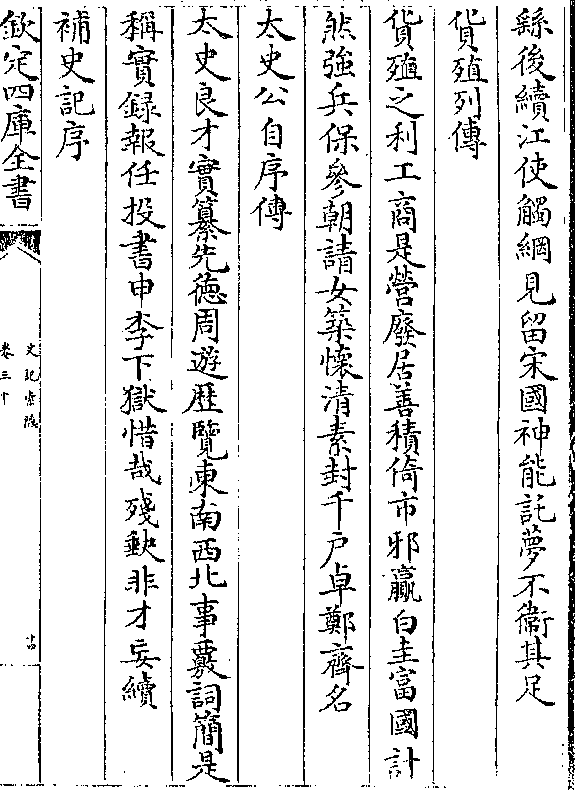 繇後續江使觸網見留宋國神能託夢不衞其足
貨殖列傳
貨殖之利工商是營廢居善積倚市邪贏白圭富國計
然強兵保參朝請女築懷清素封千戶卓鄭齊名
太史公自序傳
太史良才寔纂先德周遊歷覽東南西北事覈詞簡是
稱實録報任投書申李下獄惜哉殘缺非才妄續
補史記序
欽定四庫全書
史記索隱
卷三十